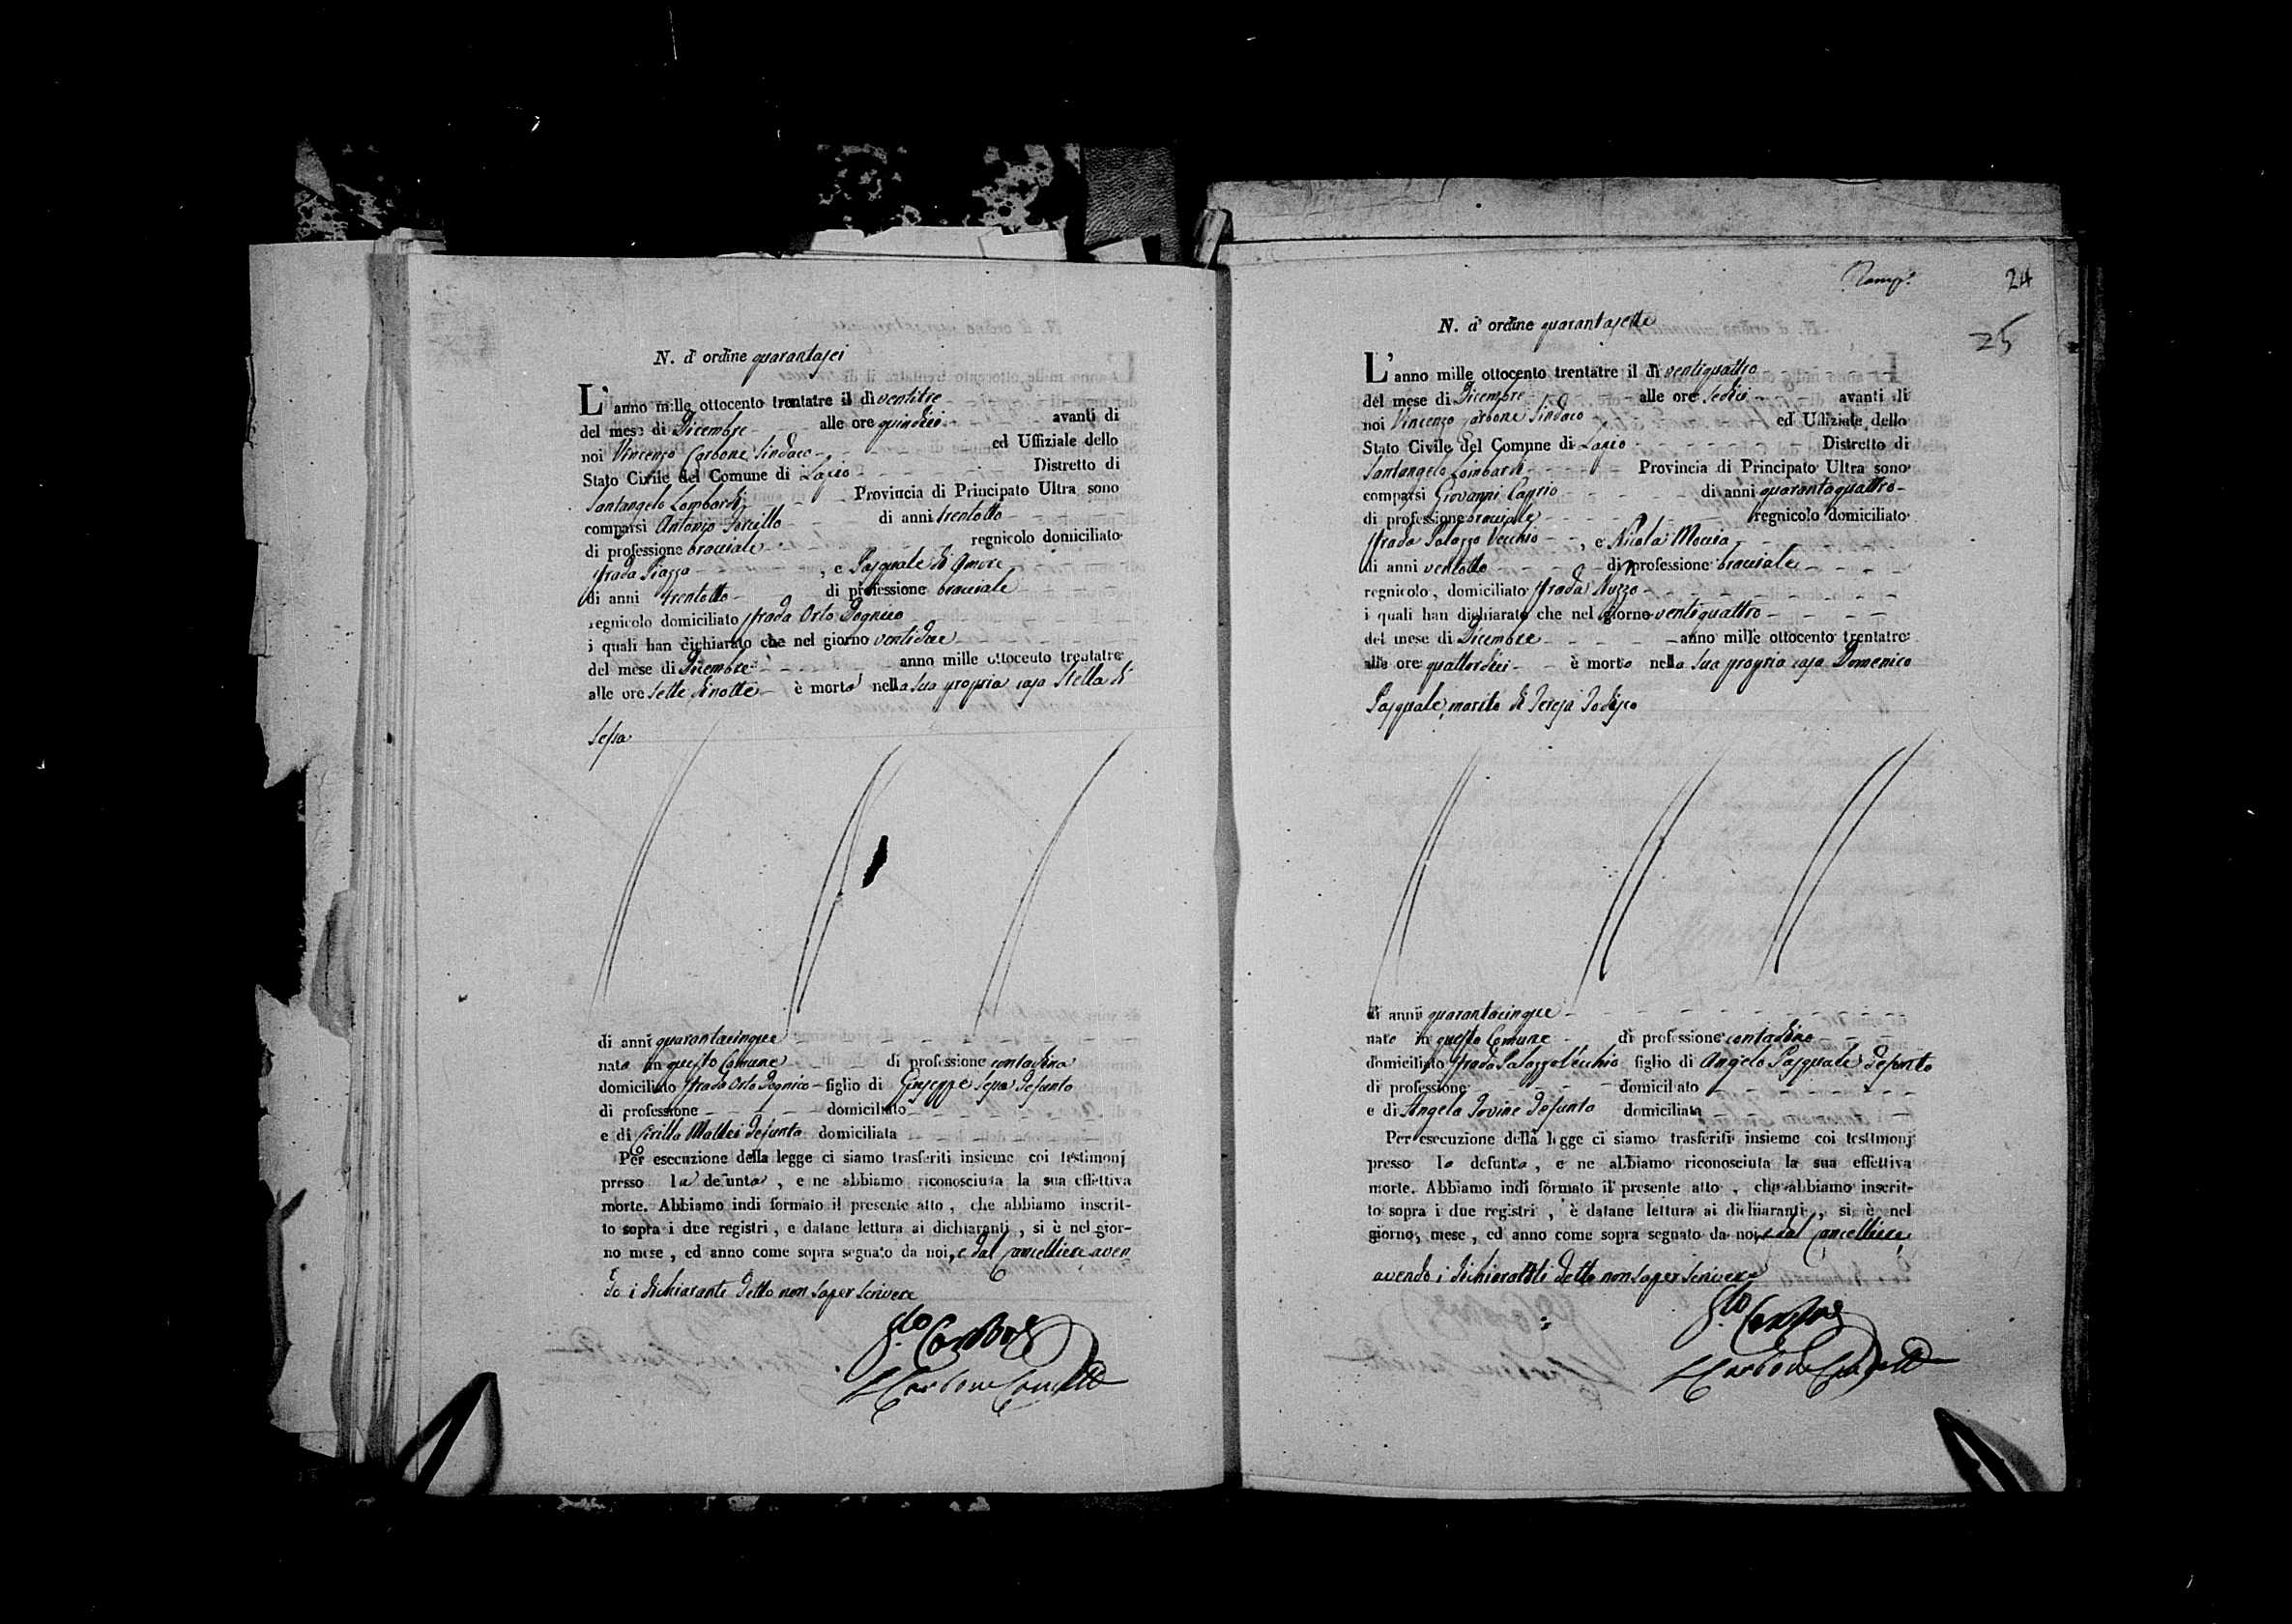 N. d' ordine quarantasei
L' anno mille ottocento trentatre il dì ventitre
del mese di Dicembre alle ore quindici avanti di
noi Vincenzo Carbone Sindaco ed Uffiziale dello
Stato Civile del Comune di Lapio Distretto di
Santangelo Lombardi Provincia di Principato Ultra sono
comparsi Antonio di anni trentotto
di professione bracciale regnicolo domiciliato
strada Piazza , e Pasquale di Amore
di anni trentotto di professione bracciale
regnicolo domiciliato strada Orto
i quali han dichiarato che nel giorno ventidue
del mese di Dicembre anno mille ottocento trentatre
alle ore sette di notte è morta nella sua propria casa Stella di
Sessa
di anni quarantacinque
nata in questo Comune di professione contadina
domiciliato strada Orto figlio di Giuseppe Sessa defunto
di professione domiciliato
e di Cirilla Mattei defunta domiciliata
Per esecuzione della legge ci siamo trasferiti insieme coi testimonj
presso la defunta , e ne abbiamo riconosciuta la sua effettiva
morte. Abbiamo indi formato il presente atto , che abbiamo inscrit-
to sopra i due registri , e datane lettura ai dichiaranti , si è nel gior-
no mese , ed anno come sopra segnato da noi, e dal Cancelliere aven
do i dichiaranti detto non saper scrivere
Carbone
Carbone
24
25
N. d' ordine quarantasette
L' anno mille ottocento trentatre il dì ventiquattro
del mese di Dicembre alle ore sedici avanti di
noi Vincenzo Carbone Sindaco ed Uffiziale dello
Stato Civile del Comune di Lapio Distretto di
Santangelo Lombardi Provincia di Principato Ultra sono
comparsi Giovanni Caprio di anni quarantaquattro
di professione bracciale regnicolo domiciliato
strada Palazzo Vecchio , e Nicola Moccia
di anni ventotto di professione bracciale
regnicolo, domiciliato strada Nuzzo
i quali han dichiarato che nel giorno ventiquattro
del mese di Dicembre anno mille ottocento trentatre
alle ore quattordici è morto nella sua propria casa Domenico
Pasquale, marito di Teresa Todisco
di anni quarantacinque
nato in questo Comune di professione contadino
domiciliato strada Palazzo Vecchio figlio di Angelo Pasquale defunto
di professione domiciliato
e di Angela Iovine defunta domiciliata
Per esecuzione della legge ci siamo trasferiti insieme coi testimonj
presso lo defunto , e ne abbiamo riconosciuta la sua effettiva
morte. Abbiamo indi formato il presente atto , che abbiamo inscrit-
to sopra i due registri , è datane lettura ai dichiaranti , si è nel
giorno, mese , ed anno come sopra segnato da noi, e dal Cancelliere
avendo i dichiaranti detto non saper scrivere
Carbone
Carbone